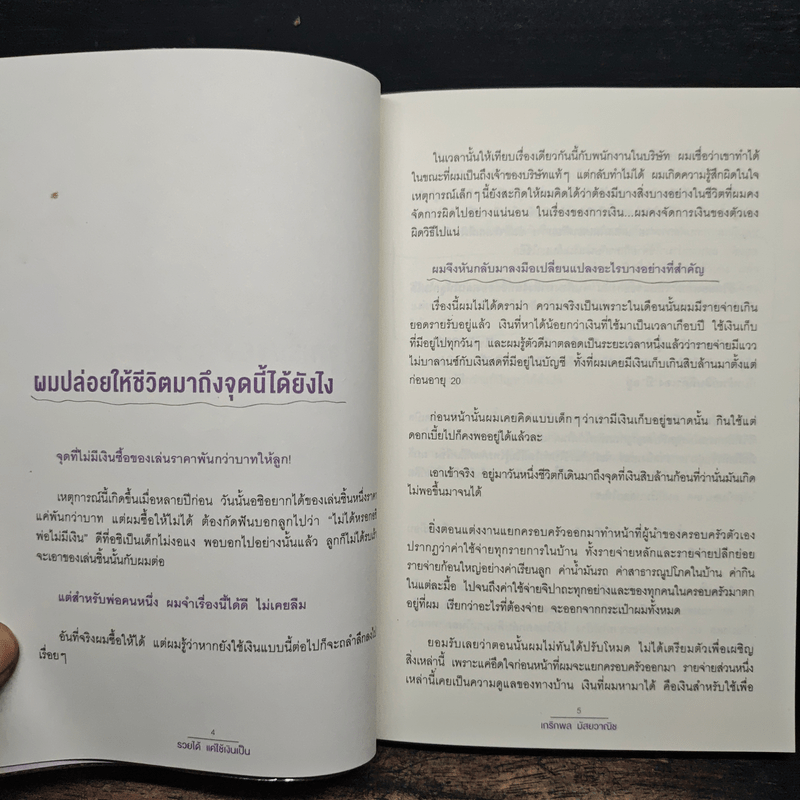 ผมปล่อยให้ชีวิตมาถึงจุดนี้ได้ยังไง
จุดที่ไม่มีเงินซื้อของเล่นราคาพันกว่าบาทให้ลูก!
เหตุการณ์นี้เกิดขึ้นเมื่อหลายปีก่อน วันนั้นอชิอยากได้ของเล่นชิ้นหนึ่งราคา
แค่พันกว่าบาท แต่ผมซื้อให้ไม่ได้ ต้องกัดฟันบอกลูกไปว่า "ไม่ได้หรอกอชิ
พ่อไม่มีเงิน" ดีที่อชิเป็นเด็กไม่งอแง พอบอกไปอย่างนั้นแล้ว ลูกก็ไม่ได้รบเร้า
จะเอาของเล่นชิ้นนั้นกับผมต่อ
แต่สำหรับพ่อคนหนึ่ง ผมจำเรื่องนี้ได้ดี ไม่เคยลืม
อันที่จริงผมซื้อให้ได้ แต่ผมรู้ว่าหากยังใช้เงินแบบนี้ต่อไปก็จะถลำลึกลงไป
เรื่อยๆ
4
รวยได้ แค่ใช้เงินเป็น
ในเวลานั้นให้เทียบเรื่องเดียวกันนี้กับพนักงานในบริษัท ผมเชื่อว่าเขาทำได้
ในขณะที่ผมเป็นถึงเจ้าของบริษัทแท้ๆ แต่กลับทำไม่ได้ ผมเกิดความรู้สึกผิดในใจ
เหตุการณ์เล็กๆ นี้ยังสะกิดให้ผมคิดได้ว่าต้องมีบางสิ่งบางอย่างในชีวิตที่ผมคง
จัดการผิดไปอย่างแน่นอน ในเรื่องของการเงิน...ผมคงจัดการเงินของตัวเอง
ผิดวิธีไปแน่
ผมจึงหันกลับมาลงมือเปลี่ยนแปลงอะไรบางอย่างที่สำคัญ
เรื่องนี้ผมไม่ได้ดราม่า ความจริงเป็นเพราะในเดือนนั้นผมมีรายจ่ายเกิน
ยอดรายรับอยู่แล้ว เงินที่หาได้น้อยกว่าเงินที่ใช้มาเป็นเวลาเกือบปี ใช้เงินเก็บ
ที่มีอยู่ไปทุกวันๆ และผมรู้ตัวดีมาตลอดเป็นระยะเวลาหนึ่งแล้วว่ารายจ่ายมีแวว
ไม่บาลานซ์กับเงินสดที่มีอยู่ในบัญชี ทั้งที่ผมเคยมีเงินเก็บเกินสิบล้านมาตั้งแต่
ก่อนอายุ 20
ก่อนหน้านั้นผมเคยคิดแบบเด็กๆ ว่าเรามีเงินเก็บอยู่ขนาดนั้น กินใช้แต่
ดอกเบี้ยไปก็คงพออยู่ได้แล้วละ
เอาเข้าจริง อยู่มาวันหนึ่งชีวิตก็เดินมาถึงจุดที่เงินสิบล้านก้อนที่ว่านั่นมันเกิด
ไม่พอขึ้นมาจนได้
ยิ่งตอนแต่งงานแยกครอบครัวออกมาทำหน้าที่ผู้นำของครอบครัวตัวเอง
ปรากฏว่าค่าใช้จ่ายทุกรายการในบ้าน ทั้งรายจ่ายหลักและรายจ่ายปลีกย่อย
รายจ่ายก้อนใหญ่อย่างค่าเรียนลูก ค่าน้ำมันรถ ค่าสาธารณูปโภคในบ้าน ค่ากิน
ในแต่ละมื้อ ไปจนถึงค่าใช้จ่ายจิปาถะทุกอย่างและของทุกคนในครอบครัวมาตก
อยู่ที่ผม เรียกว่าอะไรที่ต้องจ่าย จะออกจากกระเป๋าผมทั้งหมด
ยอมรับเลยว่าตอนนั้นผมไม่ทันได้ปรับโหมด ไม่ได้เตรียมตัวเพื่อเผชิญ
สิ่งเหล่านี้ เพราะแค่อึดใจก่อนหน้าที่ผมจะแยกครอบครัวออกมา รายจ่ายส่วนหนึ่ง
เหล่านี้เคยเป็นความดูแลของทางบ้าน เงินที่ผมหามาได้ คือเงินสำหรับใช้เพื่อ
5
เกริกพล มัสยวาณิช